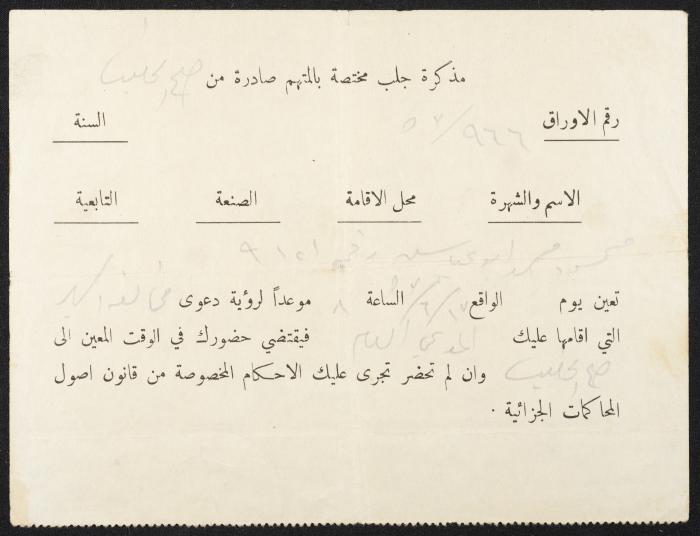 مذكرة جلب مختصة بالمتهم صادرة من صلح
رقم الاوراق ٩٦٦/٥٧ السنة
الاسم والشهرة محل الاقامة الصنعة التابعية
محمد
تعين يوم الواقع الساعة ٨ موعداً لرؤية دعوى
التي اقامها عليك المدعي العام فيقتضي حضورك في الوقت المعين الى
صلح وان لم تحضر تجرى عليك الاحكام المخصوصة من قانون اصول
المحاكمات الجزائية .